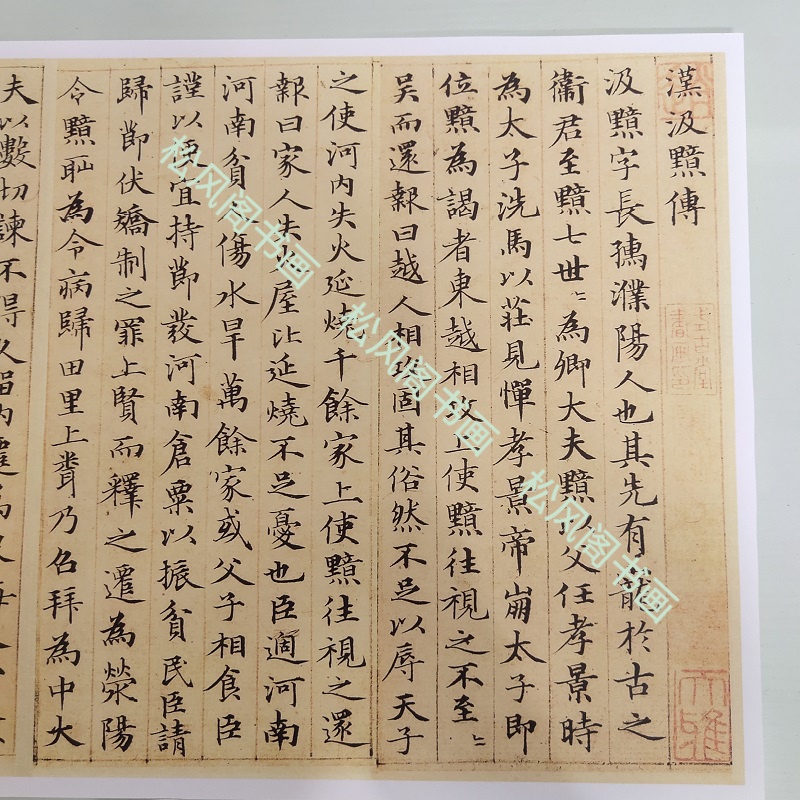 漢汲黯傳
汲黯字長孺濮陽人也其先有寵於古之
衛君至黯七世〻為卿大夫黯以父任孝景時
為太子洗馬以莊見憚孝景帝崩太子即
位黯為謁者東越相攻上使黯往視之不至〻
吳而還報曰越人相攻固其俗然不足以辱天子
之使河內失火延燒千餘家上使黯往視之還
報曰家人失火屋比延燒不足憂也臣適河南
河南貧人傷水旱萬餘家或父子相食臣
謹以便宜持節發河南倉粟以振貧民臣請
歸節伏矯制之罪上賢而釋之遷為滎陽
令黯恥為令病歸田里上聞乃召拜為中大
夫以數切諫不得久留內遷為
大雅
松风阁书画
松风阁书画
松风阁书画